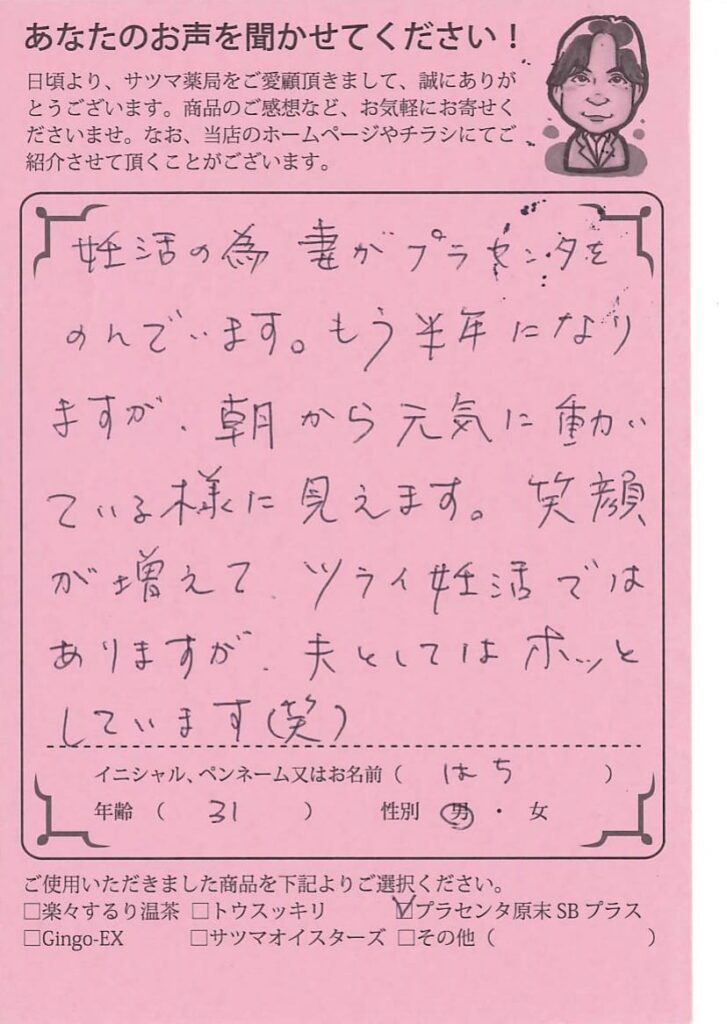 あなたのお声を聞かせてください！
日頃より、サツマ薬局をご愛顧頂きまして、誠にありが
とうございます。商品のご感想など、お気軽にお寄せく
ださいませ。なお、当店のホームページやチラシにてご
紹介させて頂くことがございます。
妊活の為 妻がプラセンタを
のんでいます。もう半年になり
ますが、朝から元気に動い
ている様に見えます。笑顔
が増えて、ツライ妊活では
ありますが、夫としてはホッと
しています(笑)
イニシャル、ペンネーム又はお名前（ はち ）
年齢（ 31 ） 性別 男・女
ご使用いただきました商品を下記よりご選択ください。
□楽々するり温茶 □トウスッキリ ☑プラセンタ原末SBプラス
□Gingo-EX □サツマオイスターズ □その他（ ）